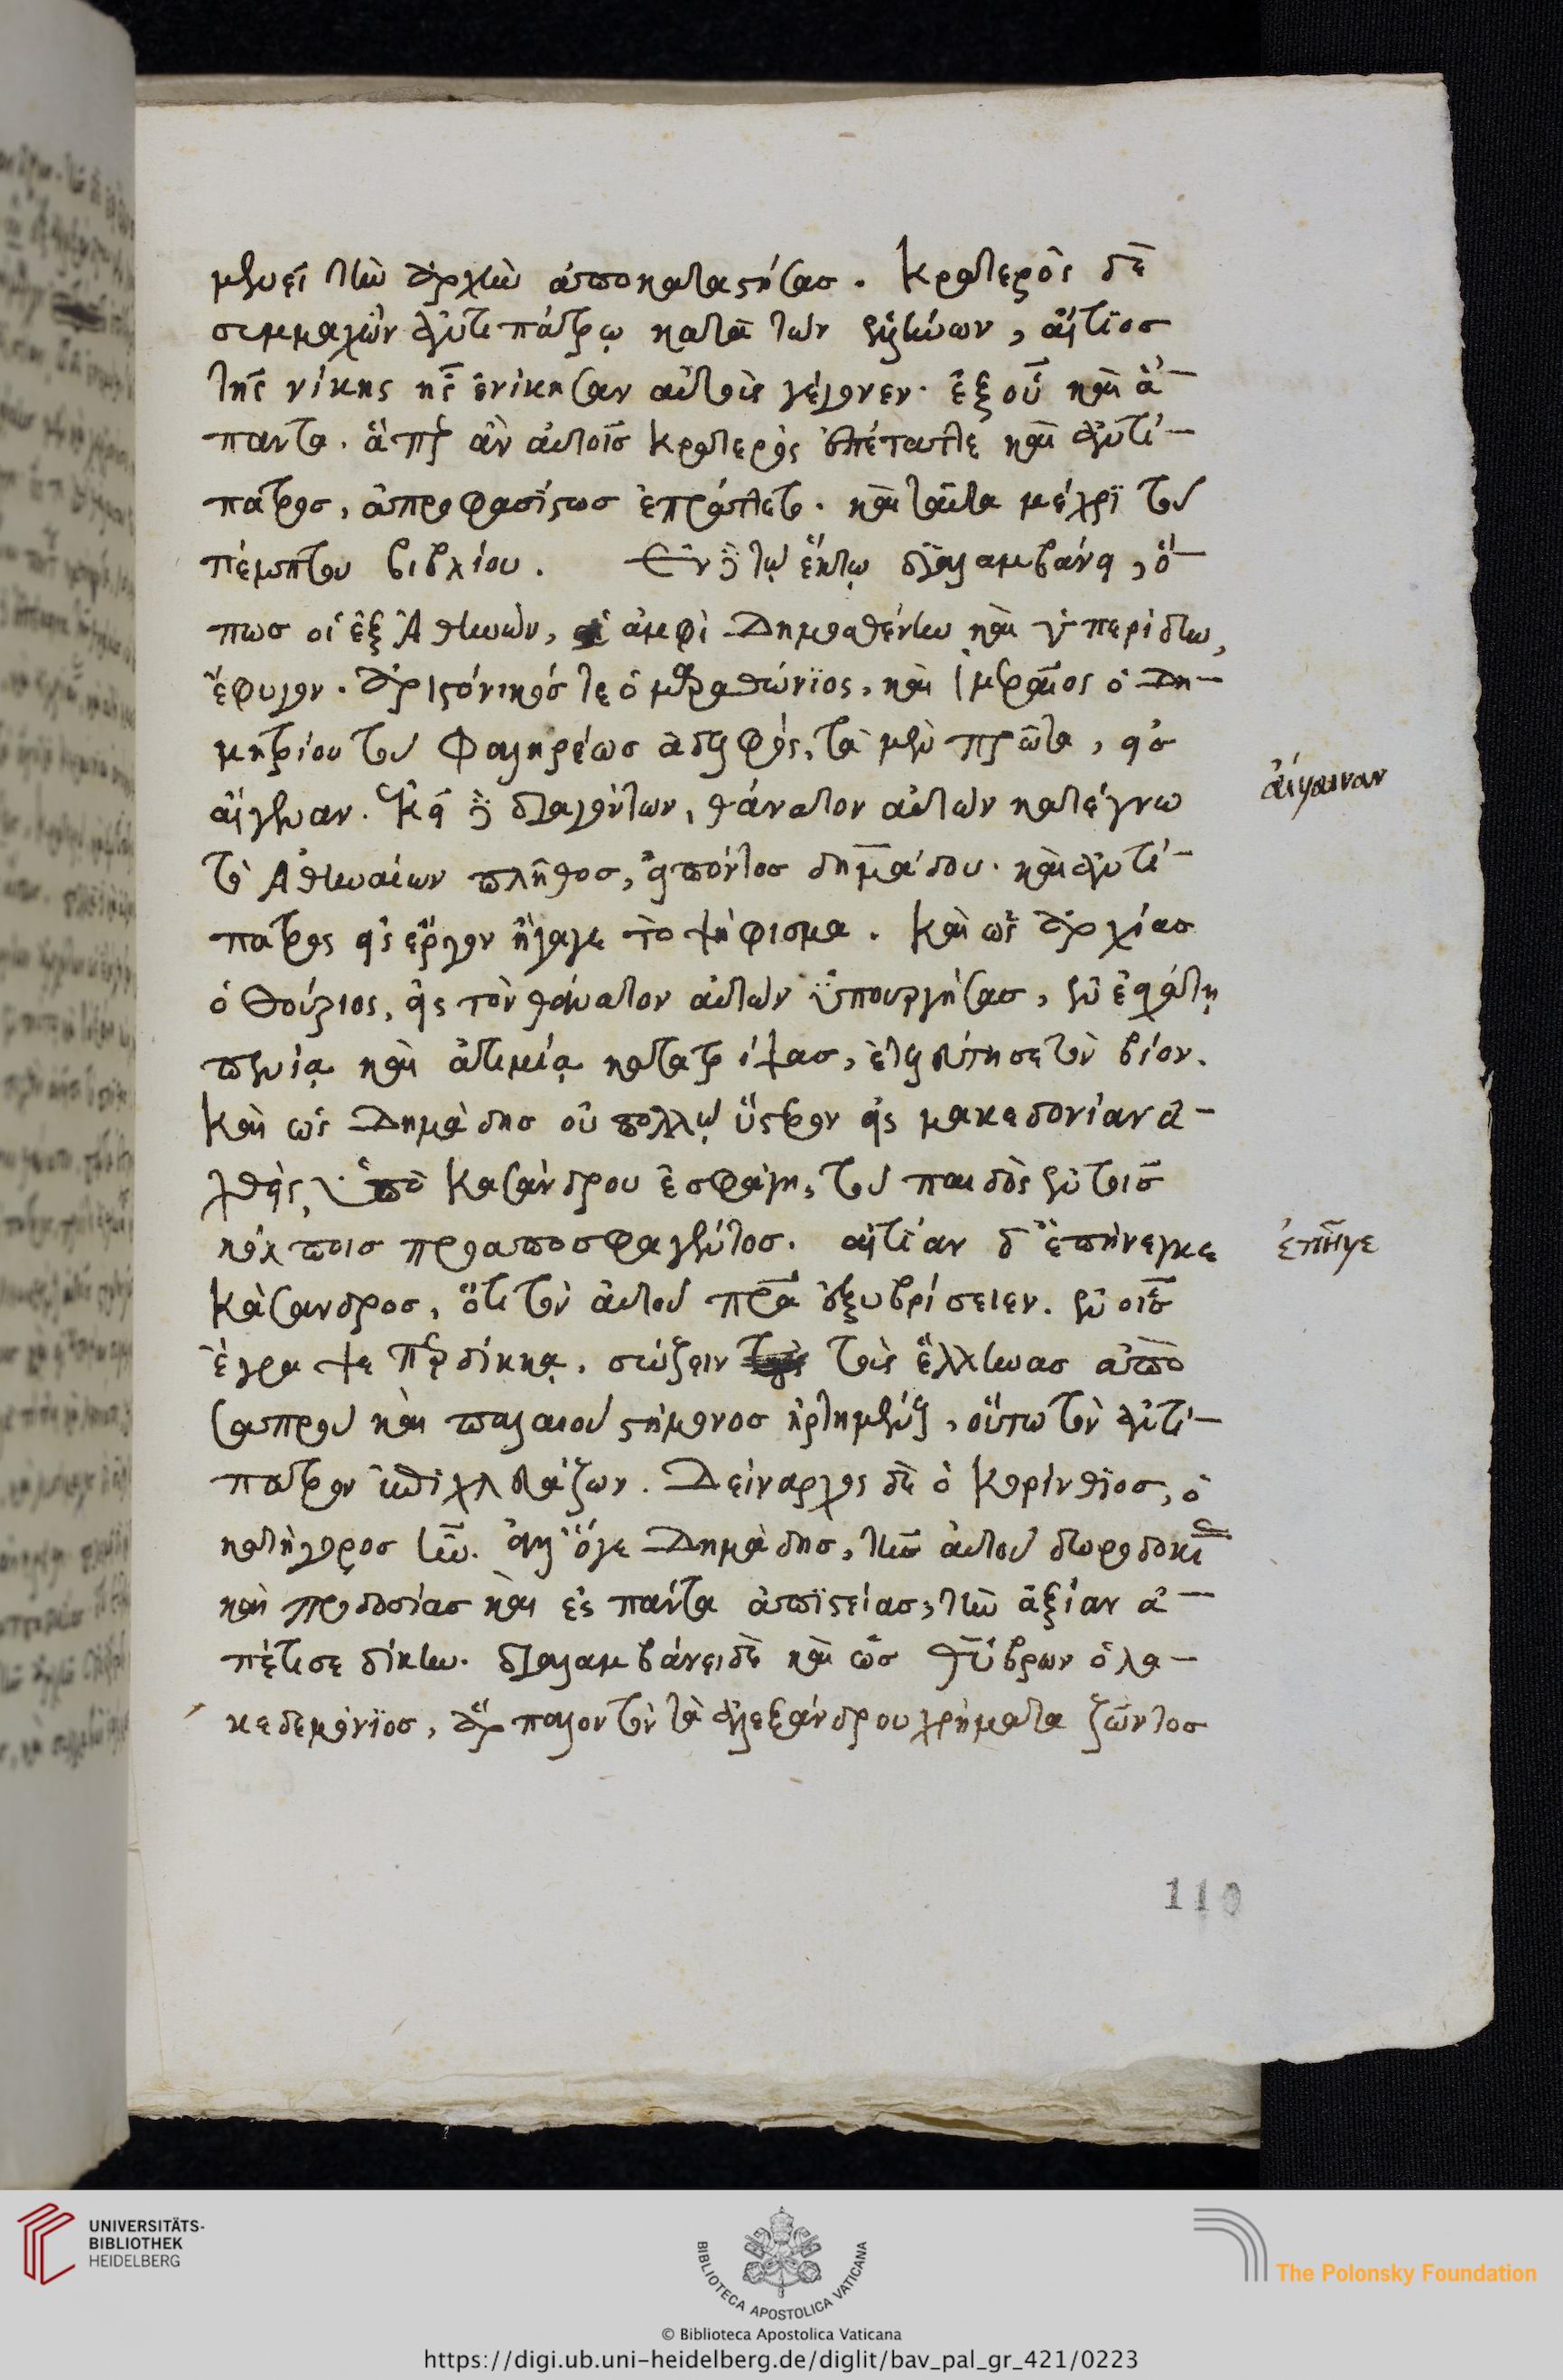 μενεῖ τὴν ἀρχὴν ἀποκαταστήσας. Κρατερὸς δὲ
συμμαχῶν ἀντιπάτρῳ κατὰ τῶν ἑλλήνων, αἴτϊος
τῆς νίκης ἧς ἐνίκησαν αὐτοὺς γέγονεν· ἐξ οὗ καὶ ἅ-
παντα. ἅπερ ἂν αὐτοῖς κρατερὸς ἐπέταττε καὶ ἀντί-
πατρος, ἀπροφασΐστως ἐπράττετο. καὶ ταῦτα μέχρϊ τοῦ
πέμπτου βιβλίου. Ἐν δὲ τῷ ἕκτῳ διαλαμβάνει, ὅ-
πως οἱ ἐξ Ἀθηνῶν, οἱ ἀμφὶ Δημοσθένην καὶ ὑπερίδην,
ἔφυγον. ἀριστόνικός τε ὁ μαραθώνϊος, καὶ ἱμεραῖος ὁ Δη-
μητρίου τοῦ Φαληρέως ἀδελφός, τὰ μὲν πρῶτα, εἰς
αἴγεναν. Κεῖ δὲ διαγόντων, θάνατον αὐτῶν κατέγνω
τὸ Ἀθηναίων πλῆθος, εἰπόντος δημάδου. καὶ ἀντί-
πατρος εἰς ἔργον ἤγαγε τὸ ψήφισμα. Καὶ ὡς ἀρχίας
ὁ Θούριος, εἰς τὸν θάνατον αὐτῶν ὑπουργήσας, ἐν ἐσχάτῃ
πενίᾳ καὶ ἀτιμίᾳ κατατρίψας, ἐτελεύτησε τὸν βίον.
Καὶ ὡς Δημάδης οὐ πολλῷ ὕστερον εἰς μακεδονίαν ἀ-
χθεὶς, ὑπὸ Κασάνδρου ἐσφάγη, τοῦ παιδὸς ἐν τοῖς
κόλποις προαποσφαγέντος. αἰτίαν δ' ἐπήνεγκε
Κάσανδρος, ὅτι τὸν αὐτοῦ πρα ἐξυβρίσειεν. ἐν οἷς
ἔγραψε Περδίκκᾳ, σώζειν τοὺς ἕλληνας ἀπὸ
σαπροῦ καὶ παλαιοῦ στήμονος ἠρτημένους, οὕτω τὸν ἀντί-
πατρον ἐπιχλευάζων. Δείναρχος δὲ ὁ Κορίνθϊος, ὁ
κατήγορος ἦν. ἀλλ' ὅγε Δημάδης, τῆς αὐτοῦ δωροδοκίας
καὶ προδοσίας καὶ ἐς πάντα ἀπϊστείας, τὴν ἀξίαν ἀ-
πέτισε δίκην. διαλαμβάνει δὲ καὶ ὡς θΰβρων ὁ λα-
κεδεμόνϊος, ἅρπαλον τὸν τὰ ἀλεξάνδρου χρήματα ζῶντος
αἴγιναν
ἐπῆγε
110
UNIVERSITÄTS-
BIBLIOTHEK
HEIDELBERG
BIBLIOTECA APOSTOLICA VATICANA
The Polonsky Foundation
© Biblioteca Apostolica Vaticana
https://digi.ub.uni-heidelberg.de/diglit/bav_pal_gr_421/0223